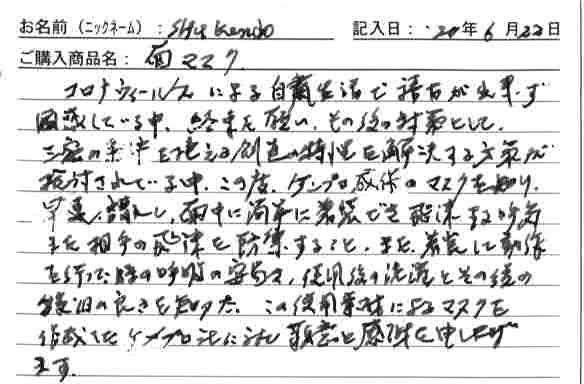 お名前（ニックネーム）：SHU Kendo 記入日：'20年6月22日
ご購入商品名：面マスク
コロナウィールスによる自粛生活で稽古が出来ず
困惑している中、終末を願い、その後の対策として、
三密の条件を 剣道の特性を解決する方策が
検討されている中、この度、ケンプロ のマスクを知り、
早速、購入し、面中に簡単に着装でき
また相手の飛沫を防禦すること、また、着装し動作
を行った時の呼吸の安易さ、使用後の洗濯とその後の
の良さを知った。この使用素材によるマスクを
作成した ケンプロ 社に対し敬意と感謝を申し上げ
ます。